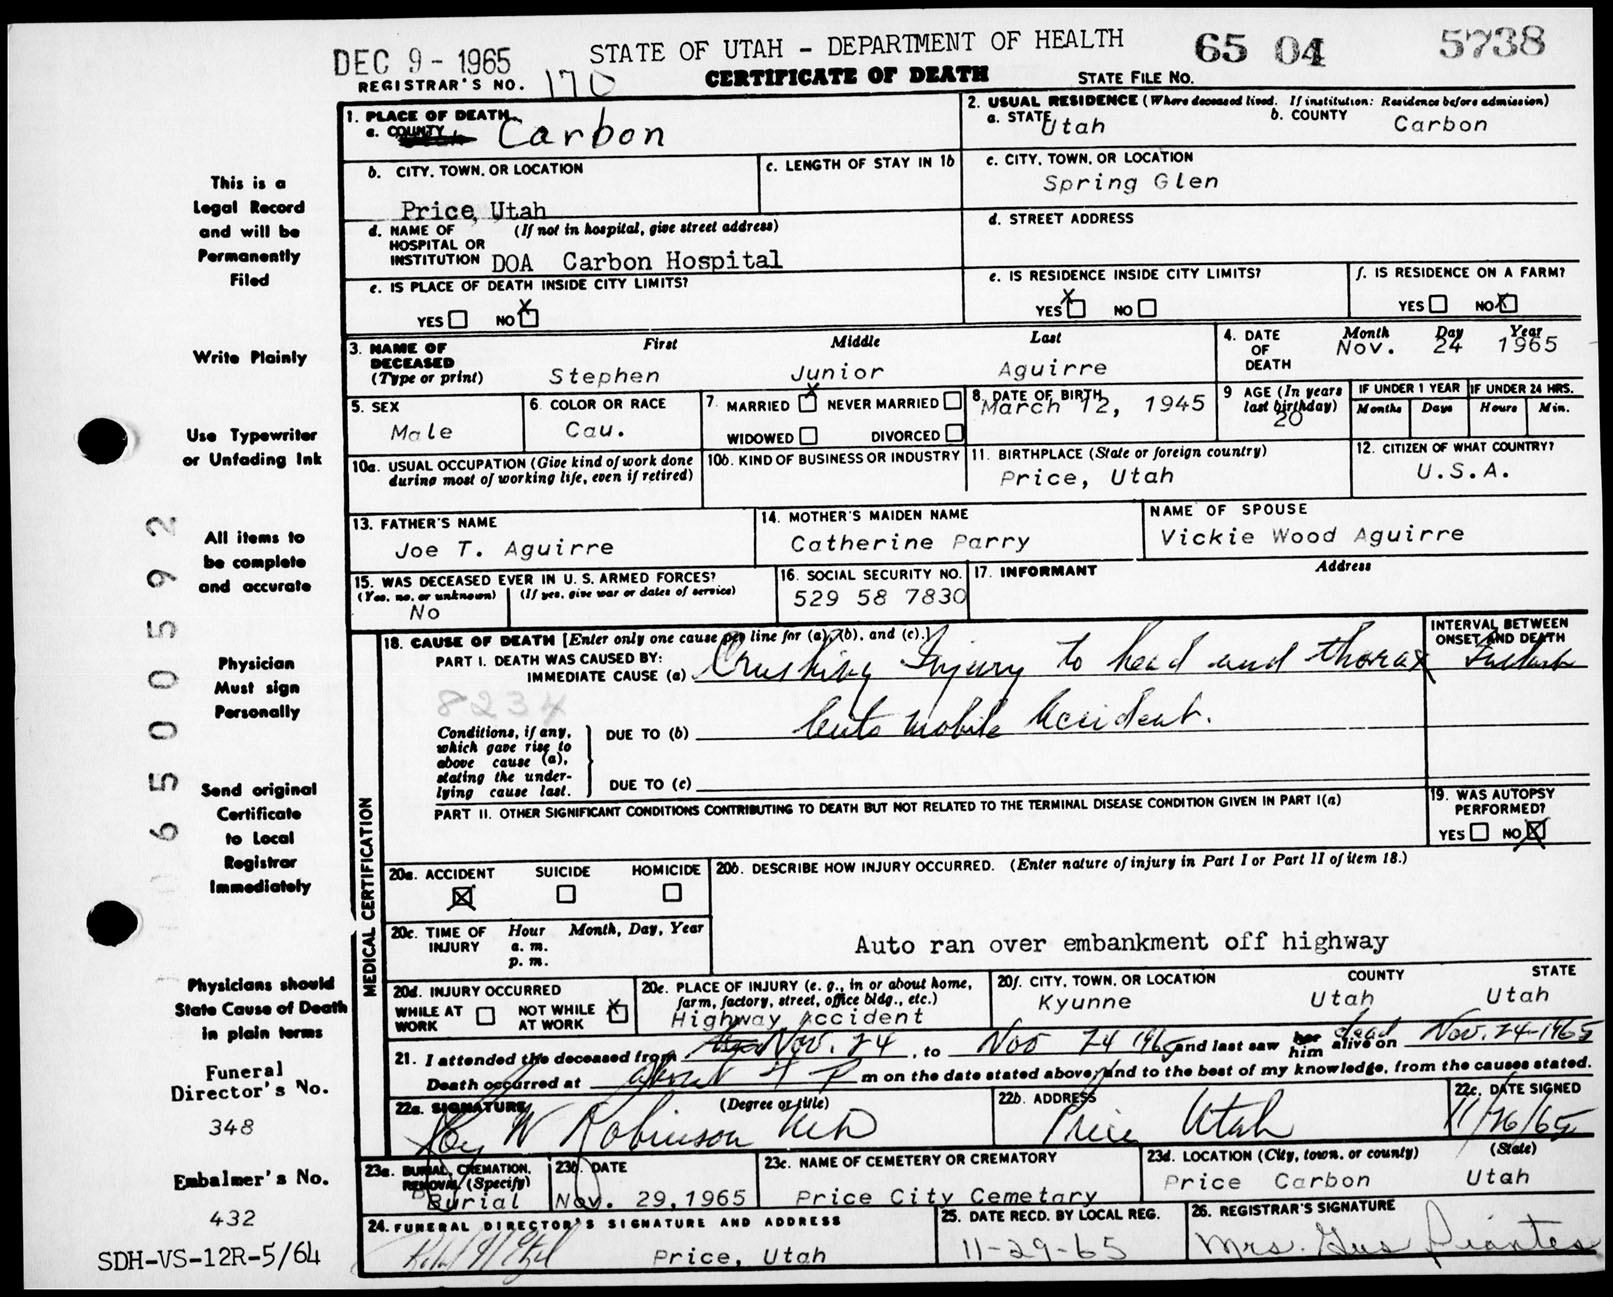 DEC 9 - 1965
STATE OF UTAH - DEPARTMENT OF HEALTH
65 04 5738
REGISTRAR'S NO. 170
CERTIFICATE OF DEATH
STATE FILE NO.
This is a
Legal Record
and will be
Permanently
Filed
Write Plainly
Use Typewriter
or Unfading Ink
All items to
be complete
and accurate
Physician
Must sign
Personally
Send original
Certificate
to Local
Registrar
Immediately
Physicians should
State Cause of Death
in plain terms
Funeral
Director's No.
348
Embalmer's No.
432
SDH-VS-12R-5/64
6 5 0 0 5 9 2
1. PLACE OF DEATH
a. COUNTY Carbon
2. USUAL RESIDENCE (Where deceased lived. If institution: Residence before admission)
a. STATE Utah
b. COUNTY Carbon
b. CITY, TOWN, OR LOCATION
Price, Utah
c. LENGTH OF STAY IN 1b
c. CITY, TOWN, OR LOCATION
Spring Glen
d. NAME OF HOSPITAL OR INSTITUTION (If not in hospital, give street address)
DOA Carbon Hospital
d. STREET ADDRESS
e. IS PLACE OF DEATH INSIDE CITY LIMITS?
YES NO X
e. IS RESIDENCE INSIDE CITY LIMITS?
YES X NO
f. IS RESIDENCE ON A FARM?
YES NO X
3. NAME OF DECEASED (Type or print)
First Middle Last
Stephen Junior Aguirre
4. DATE OF DEATH
Month Day Year
Nov. 24 1965
5. SEX
Male
6. COLOR OR RACE
Cau.
7. MARRIED X NEVER MARRIED
WIDOWED DIVORCED
8. DATE OF BIRTH
March 12, 1945
9 AGE (In years last birthday)
20
IF UNDER 1 YEAR
Months Days
IF UNDER 24 HRS.
Hours Min.
10a. USUAL OCCUPATION (Give kind of work done
during most of working life, even if retired)
10b. KIND OF BUSINESS OR INDUSTRY
11. BIRTHPLACE (State or foreign country)
Price, Utah
12. CITIZEN OF WHAT COUNTRY?
U.S.A.
13. FATHER'S NAME
Joe T. Aguirre
14. MOTHER'S MAIDEN NAME
Catherine Parry
NAME OF SPOUSE
Vickie Wood Aguirre
15. WAS DECEASED EVER IN U. S. ARMED FORCES?
(Yes, no, or unknown) (If yes, give war or dates of service)
No
16. SOCIAL SECURITY NO.
529 58 7830
17. INFORMANT Address
MEDICAL CERTIFICATION
18. CAUSE OF DEATH [Enter only one cause per line for (a), (b), and (c).]
INTERVAL BETWEEN
ONSET AND DEATH
PART I. DEATH WAS CAUSED BY:
IMMEDIATE CAUSE (a) Crushing Injury to head and thorax
8234
Conditions, if any,
which gave rise to
above cause (a),
stating the under-
lying cause last.
DUE TO (b) Automobile Accident.
DUE TO (c)
PART II. OTHER SIGNIFICANT CONDITIONS CONTRIBUTING TO DEATH BUT NOT RELATED TO THE TERMINAL DISEASE CONDITION GIVEN IN PART I(a)
19. WAS AUTOPSY
PERFORMED?
YES NO X
20a. ACCIDENT SUICIDE HOMICIDE
X
20b. DESCRIBE HOW INJURY OCCURRED. (Enter nature of injury in Part I or Part II of item 18.)
Auto ran over embankment off highway
20c. TIME OF INJURY Hour Month, Day, Year
a. m.
p. m.
20d. INJURY OCCURRED
WHILE AT WORK NOT WHILE AT WORK X
20e. PLACE OF INJURY (e. g., in or about home,
farm, factory, street, office bldg., etc.)
Highway Accident
20f. CITY, TOWN, OR LOCATION COUNTY STATE
Kyunne Utah Utah
21. I attended the deceased from Nov. 24, to Nov 24 1965 and last saw her him dead alive on Nov. 24-1965
Death occurred at about 4 P m on the date stated above, and to the best of my knowledge, from the causes stated.
22a. SIGNATURE (Degree or title)
Roy W Robinson MD
22b. ADDRESS
Price Utah
22c. DATE SIGNED
11/26/65
23a. BURIAL, CREMATION, REMOVAL (Specify)
Burial
23b. DATE
Nov. 29, 1965
23c. NAME OF CEMETERY OR CREMATORY
Price City Cemetary
23d. LOCATION (City, town, or county) (State)
Price Carbon Utah
24. FUNERAL DIRECTOR'S SIGNATURE AND ADDRESS
Price, Utah
25. DATE RECD. BY LOCAL REG.
11-29-65
26. REGISTRAR'S SIGNATURE
Mrs. Gus Piantes